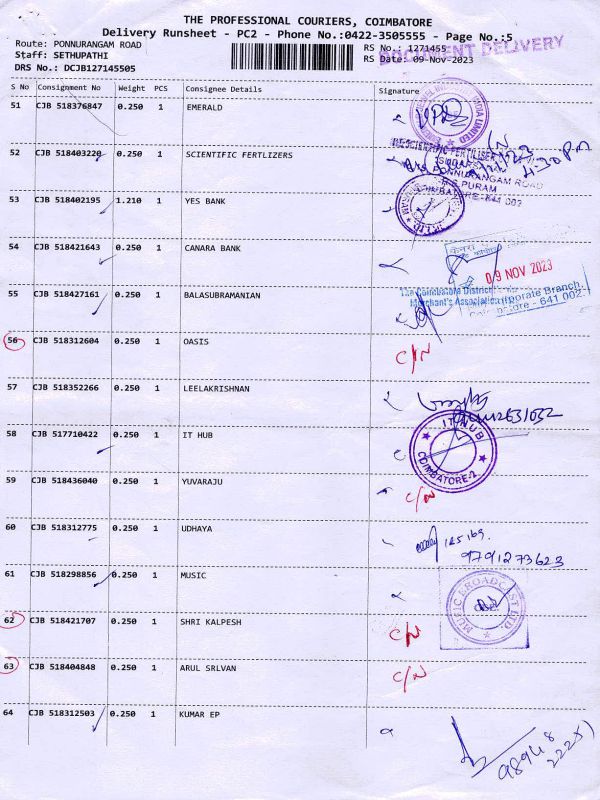 THE PROFESSIONAL COURIERS, COIMBATORE
Delivery Runsheet - PC2 - Phone No.:0422-3505555 - Page No.:5
Route: PONNURANGAM ROAD
RS No.: 1271455
DOCUMENT DELIVERY
Staff: SETHUPATHI
RS Date: 09-Nov-2023
DRS No.: DCJB127145505
S No Consignment No Weight PCS Consignee Details Signature
51 CJB 518376847 0.250 1 EMERALD
52 CJB 518403220 0.250 1 SCIENTIFIC FERTLIZERS
4:30 PM
PONNURANGAM ROAD
R.S.PURAM
COIMBATORE-641 002
53 CJB 518402195 1.210 1 YES BANK
54 CJB 518421643 0.250 1 CANARA BANK
09 NOV 2023
The Coimbatore District
Merchant's Association
Corporate Branch,
Coimbatore - 641 002.
55 CJB 518427161 0.250 1 BALASUBRAMANIAN
56 CJB 518312604 0.250 1 OASIS C/N
57 CJB 518352266 0.250 1 LEELAKRISHNAN
58 CJB 517710422 0.250 1 IT HUB
IT HUB
COIMBATORE-2
59 CJB 518436040 0.250 1 YUVARAJU C/N
60 CJB 518312775 0.250 1 UDHAYA
9791273623
61 CJB 518298856 0.250 1 MUSIC
MUSIC BROADCAST LTD
62 CJB 518421707 0.250 1 SHRI KALPESH C/N
63 CJB 518404848 0.250 1 ARUL SRLVAN C/N
64 CJB 518312503 0.250 1 KUMAR EP
98948
22251